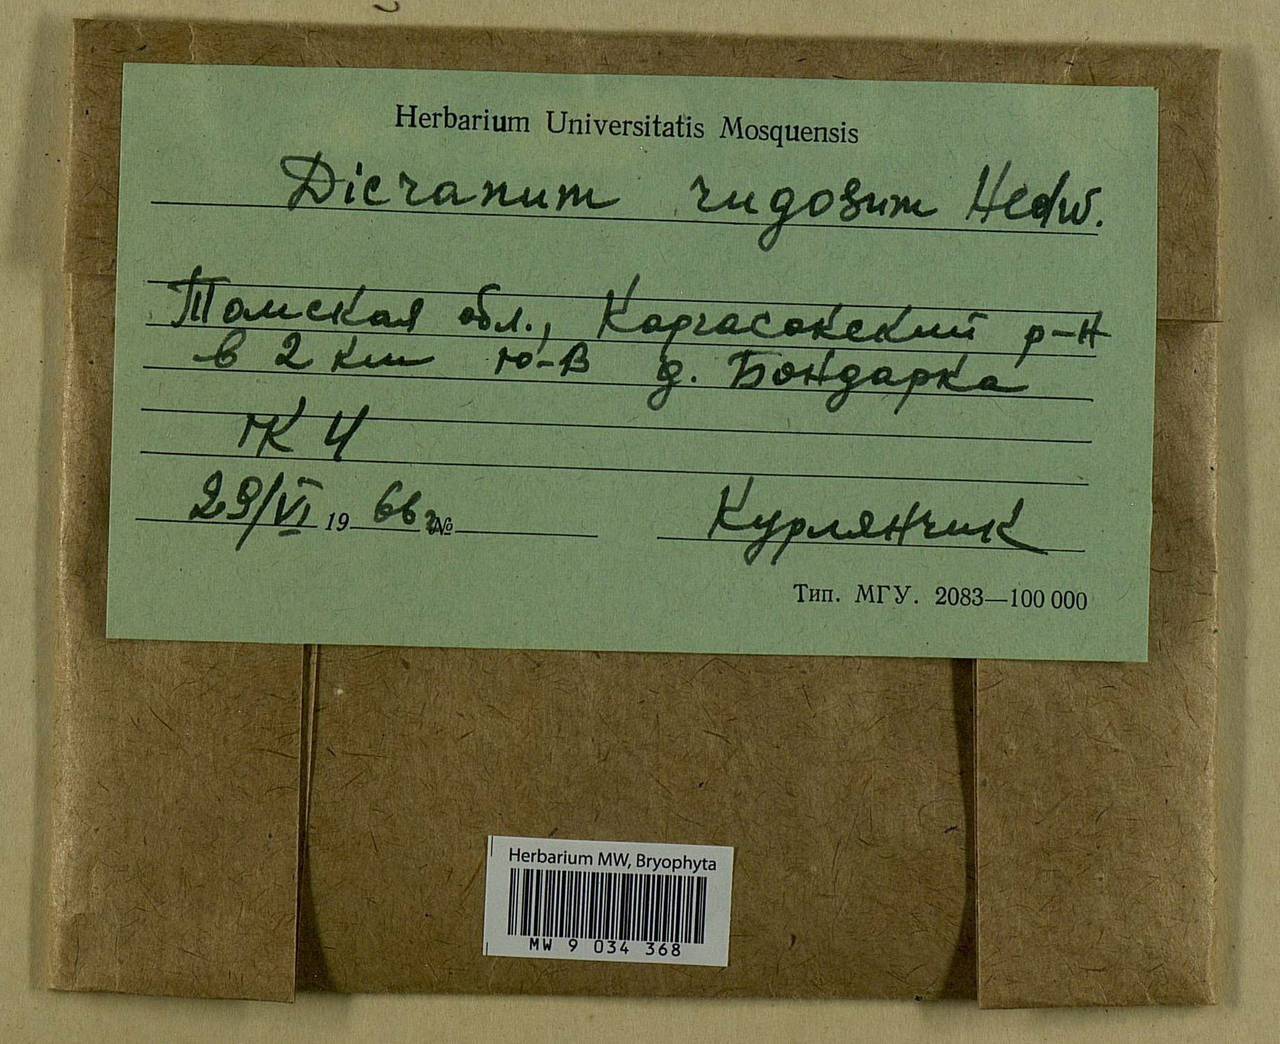 Herbarium Universitatis Mosquensis
Dicranum rugosum Hedw.
Томская обл., Каргасокский р-н
в 2 км ю-в д. Бондарка
ПК 4
29/VI 1966 г. №
Курлянчик
Тип. МГУ. 2083—100 000
Herbarium MW, Bryophyta
MW 9 034 368